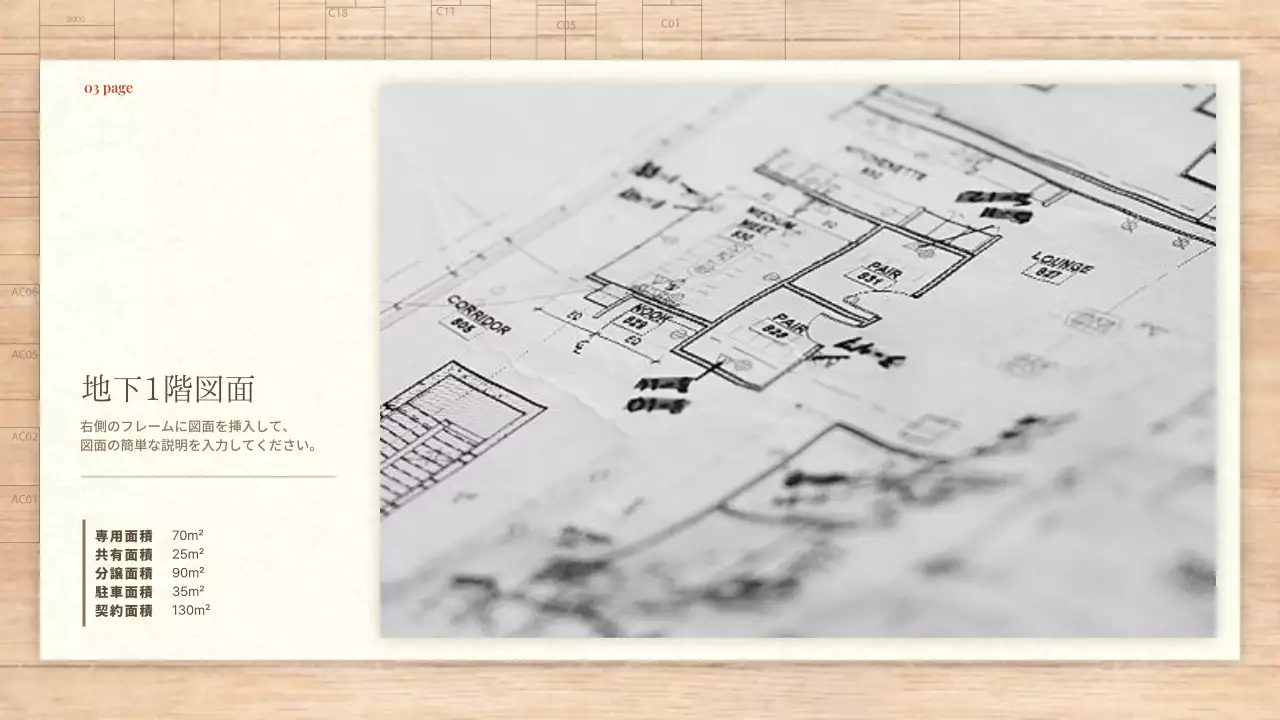 8000
C18
C11
C05
C01
03 page
AC06
AC05
AC02
AC01
地下1階図面
右側のフレームに図面を挿入して、
図面の簡単な説明を入力してください。
専用面積 70m²
共有面積 25m²
分譲面積 90m²
駐車面積 35m²
契約面積 130m²
KITCHENETTE
MEDIUM
MEET
830
LOUNGE
827
PAIR
831
CORRIDOR
NOOK
829
PAIR
828
EQ
EQ